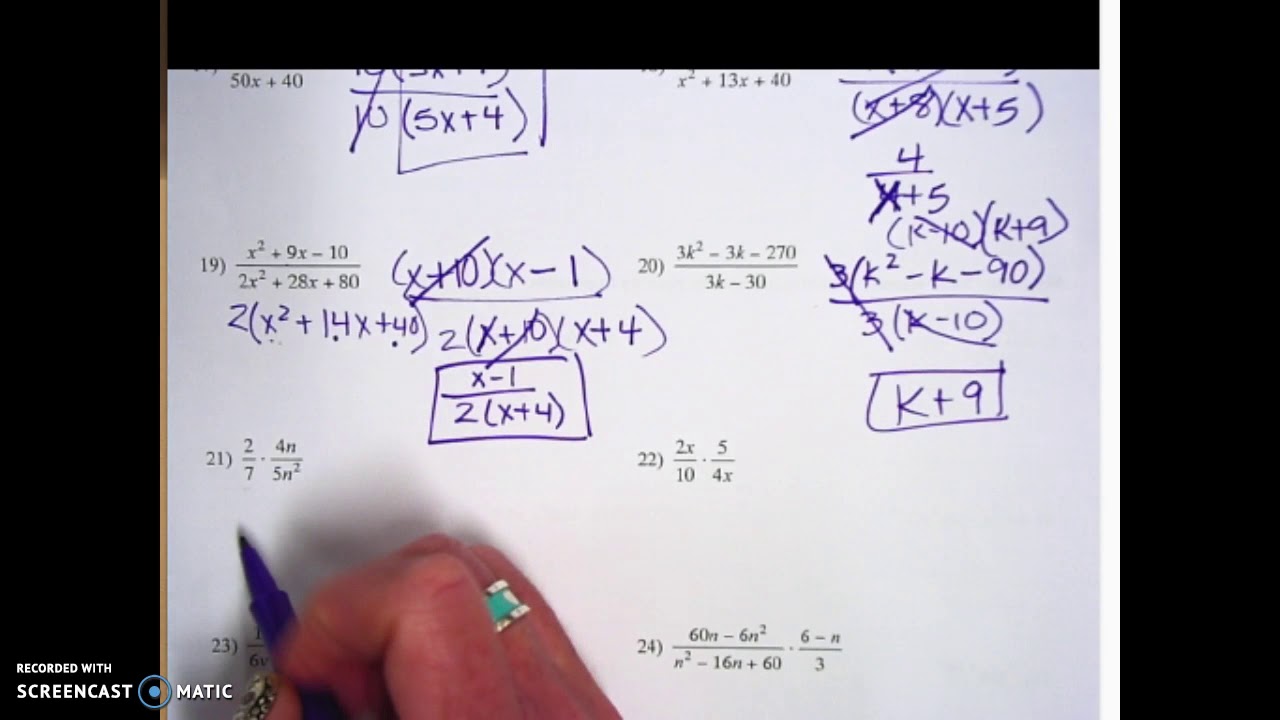 50x + 40
10 (5x+4)
x² + 13x + 40
(x+8)(x+5)
4
x+5
19) x² + 9x − 10
2x² + 28x + 80
(x+10)(x−1)
2(x²+14x+40)
2(x+10)(x+4)
x−1
2(x+4)
20) 3k² − 3k − 270
3k − 30
(k−10)(k+9)
3(k²−k−90)
3(k−10)
k+9
21) 2/7 · 4n/5n²
22) 2x/10 · 5/4x
23)
24) 60n − 6n² / n² − 16n + 60 · 6 − n / 3
RECORDED WITH
SCREENCAST MATIC